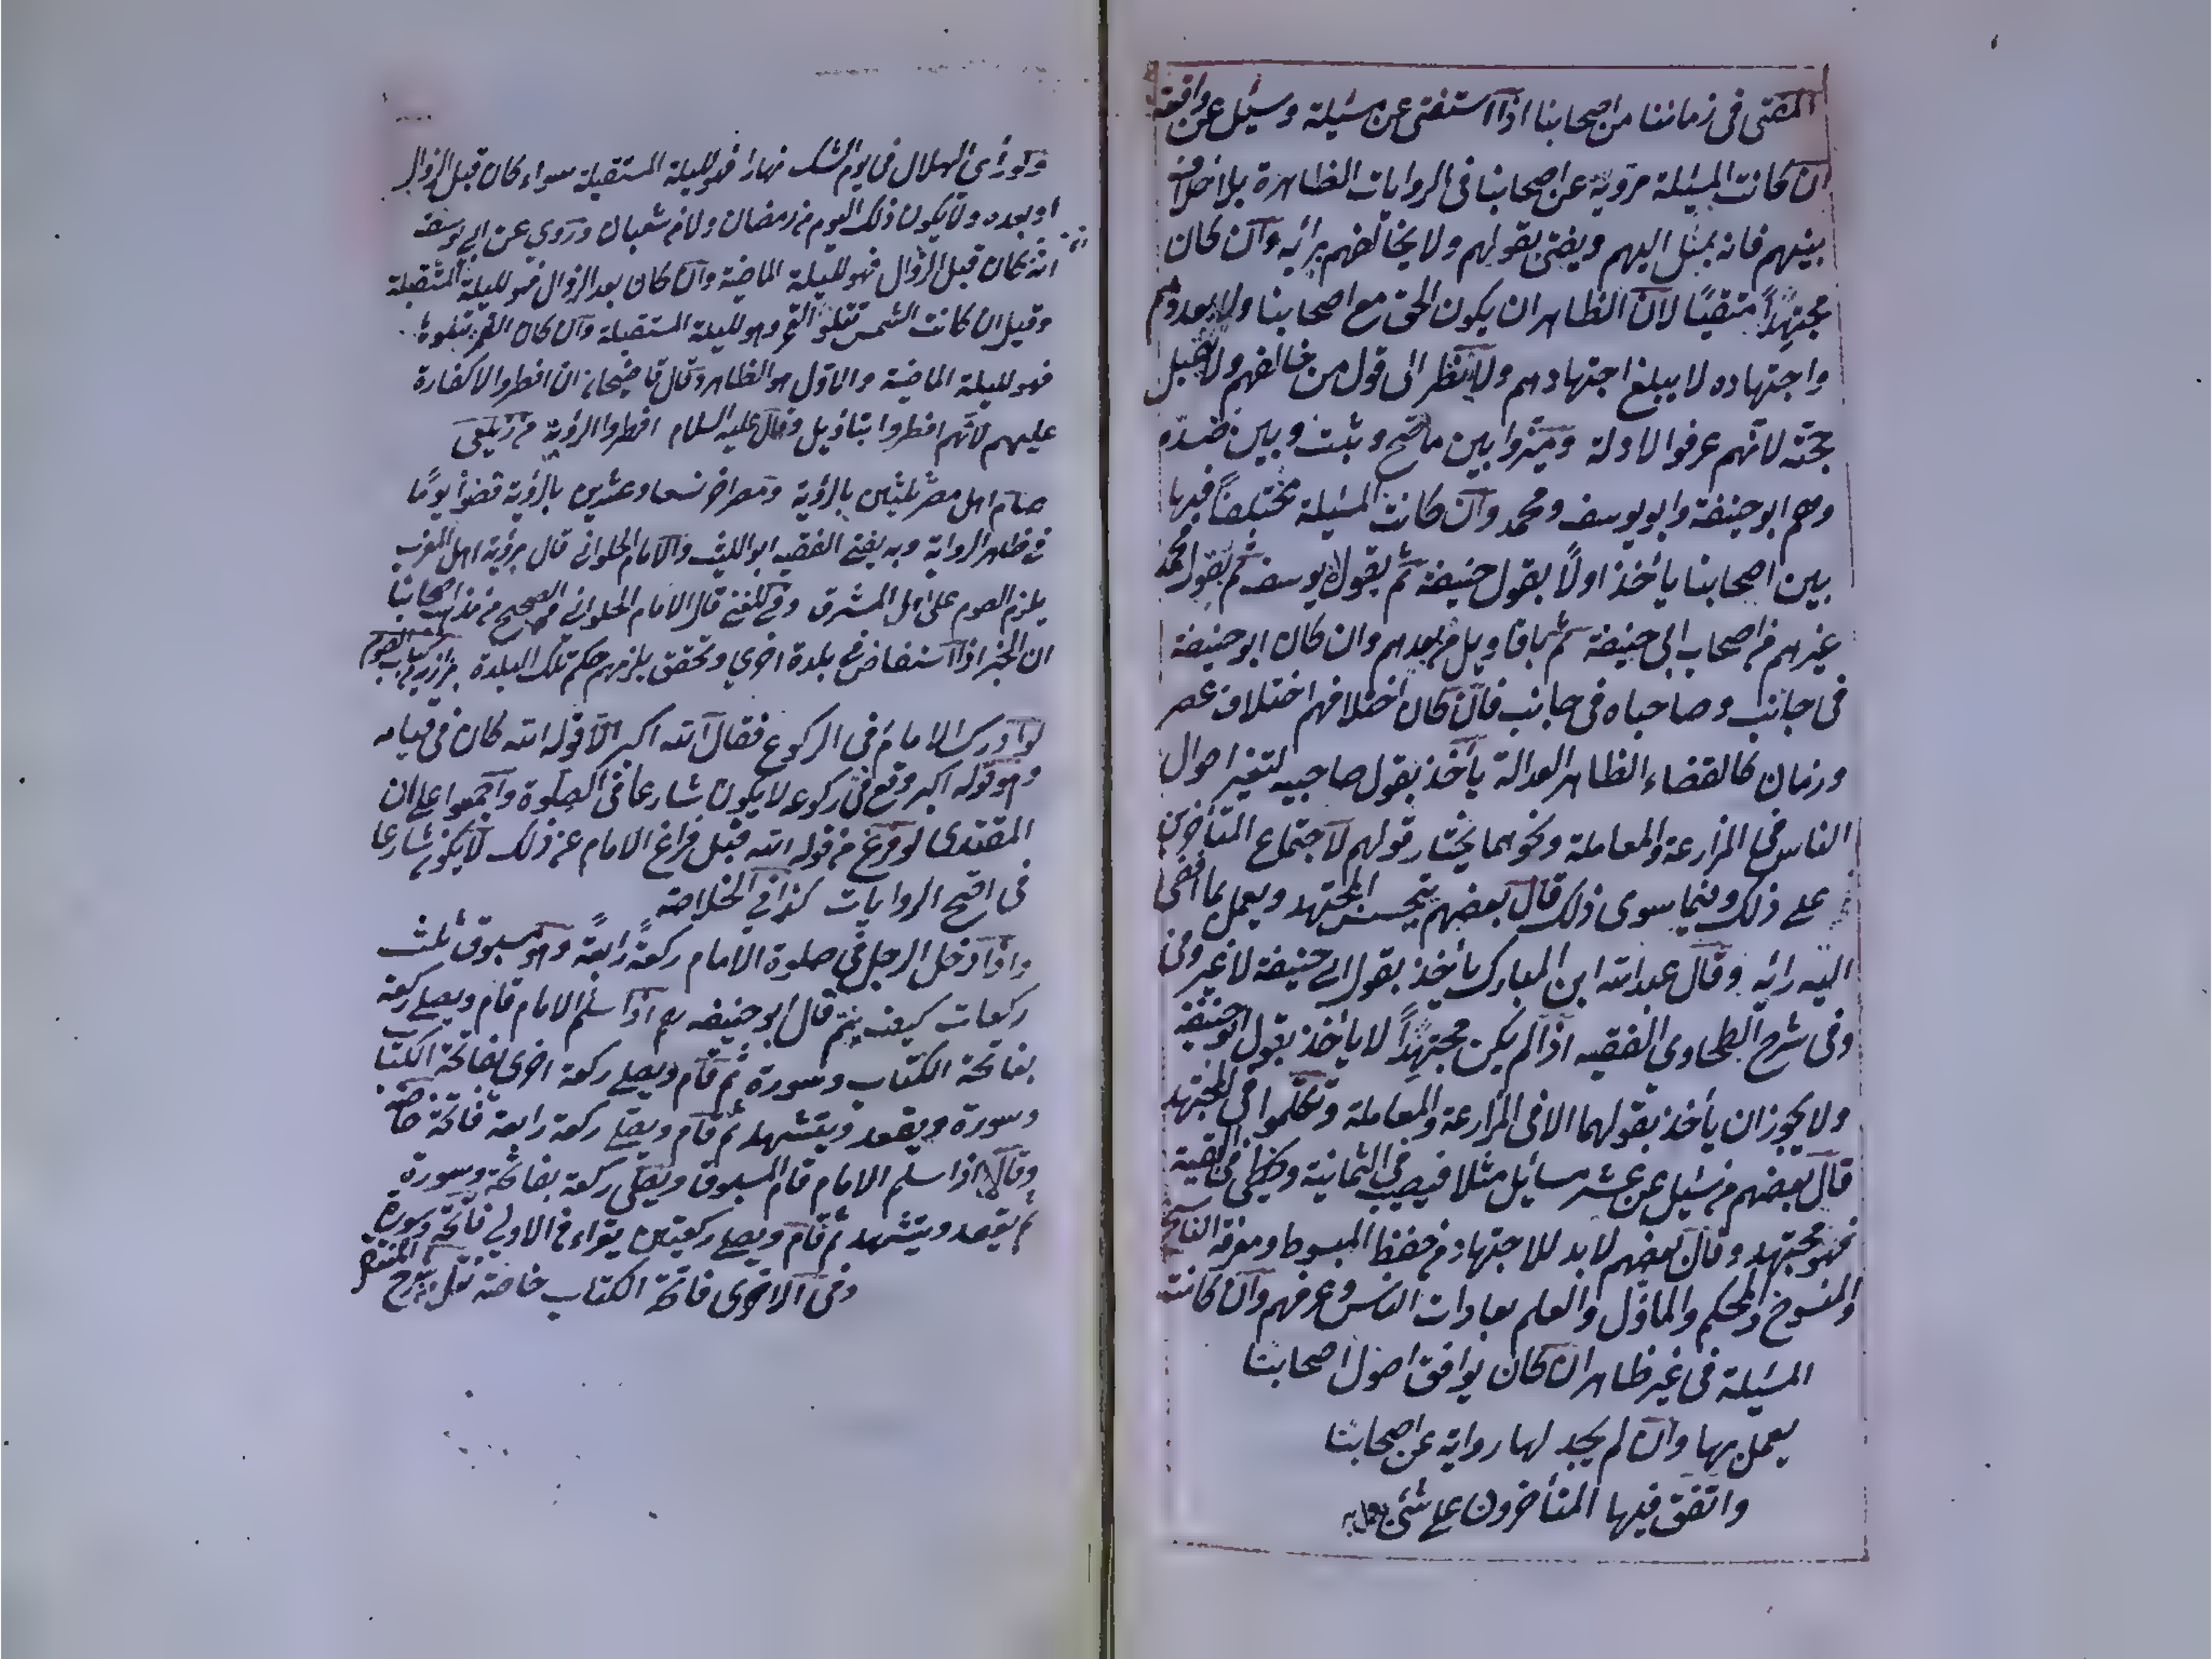 المفتى فى زماننا من اصحابنا اذا استفتى عن مسئلة وسئل عن واقعة
ان كانت المسئلة مروية عن اصحابنا فى الروايات الظاهرة بلا خلاف
بينهم فانه يميل اليهم ويفتى بقولهم ولا يخالفهم برائه وان كان
مجتهداً متقيًا لان الظاهر ان يكون الحق مع اصحابنا ولا يعدوهم
واجتهاده لا يبلغ اجتهادهم ولا ينظر الى قول من خالفهم ولا يقبل
حجته لانهم عرفوا الادلة وميزوا بين ما صح وثبت وبين ضده
وهم ابو حنيفة وابو يوسف ومحمد وان كانت المسئلة مختلفاً فيها
بين اصحابنا يأخذ اولاً بقول حنيفة ثم بقول يوسف ثم بقول محمد
غيرهم من اصحاب ابى حنيفة ثم باقاويل من بعدهم وان كان ابو حنيفة
فى جانب وصاحباه فى جانب فان كان اختلافهم اختلاف عصر
وزمان كالقضاء الظاهر العدالة يأخذ بقول صاحبيه لتغير احوال
الناس فى المزارعة والمعاملة ونحوهما يختار قولهم لاجتماع المتأخرين
على ذلك وفيما سوى ذلك قال بعضهم المجتهد ويعمل بما افضى
اليه رايه وقال عبد الله ابن المبارك يأخذ بقول ابى حنيفة لا غير وفى
وفى شرح الطحاوى الفقيه اذا لم يكن مجتهداً لا يأخذ بقول ابو حنيفة
ولا يجوز ان يأخذ بقولهما الا فى المزارعة والمعاملة وتكلموا فى المجتهد
قال بعضهم من سئل عن عشر مسائل مثلا فيصيب فى الثمانية ويخطى فى البقية
فهو مجتهد وقال بعضهم لا بد للاجتهاد من حفظ المبسوط ومعرفة الناسخ
والمنسوخ والمحكم والمأول والعلم بعادات الناس وعرفهم وان كانت
المسئلة فى غير ظاهر ان كان يوافق اصول اصحابنا
يعمل بها وان لم يجد لها رواية عن اصحابنا
واتفق فيها المتأخرون على شئ يعمل به
ولو رأى الهلال فى يوم الشك نهارا فهو لليلة المستقبلة سواء كان قبل الزوال
او بعده ولا يكون ذلك اليوم من رمضان ولا من شعبان وروى عن ابى يوسف
انه كان قبل الزوال فهو لليلة الماضية وان كان بعد الزوال فهو لليلة المستقبلة
وقيل ان كانت الشمس تتلو القمر وهو لليلة المستقبلة وان كان القمر يتلوها
فهو لليلة الماضية والاول هو الظاهر وقال قاضيخان ان افطروا لا كفارة
عليهم لانهم افطروا بتأويل وقال عليه السلام افطروا الرؤية من زيلعى
صام اهل مصر ثلثين بالرؤية ومصر اخر تسعا وعشرين بالرؤية قضوا يومًا
فى ظاهر الرواية وبه يفتى الفقيه ابو الليث والامام الحلوانى قال برؤية اهل المغرب
يلزم الصوم على اهل المشرق وفى المغنى قال الامام الحلوانى الصحيح من مذهب اصحابنا
ان الخبر اذا استفاض فى بلدة اخرى وتحقق يلزمهم حكم تلك البلدة بزازية من كتاب الصوم
لو ادرك الامام فى الركوع فقال الله اكبر الا قوله الله كان فى قيامه
وهو قوله اكبر وقع فى ركوعه لا يكون شارعا فى الصلوة واجمعوا على ان
المقتدى لو فرغ من قوله الله قبل فراغ الامام عن ذلك لا يكون شارعا
فى اصح الروايات كذا فى الخلاصة
واذا دخل الرجل فى صلوة الامام ركعةً رابعةً وهو مسبوق ثلث
ركعات كيف يتم قال ابو حنيفه رح اذا سلم الامام قام ويصلى ركعة
بفاتحة الكتاب وسورة ثم قام ويصلى ركعة اخرى بفاتحة الكتاب
وسورة ويقعد ويتشهد ثم قام ويصلى ركعة رابعة فاتحة خاصة
وقالا اذا سلم الامام قام المسبوق ويصلى ركعة بفاتحة وسورة
ثم يقعد ويتشهد ثم قام ويصلى ركعتين يقراء فى الاولى فاتحة وسورة
وفى الاخرى فاتحة الكتاب خاصة نقل من شرح